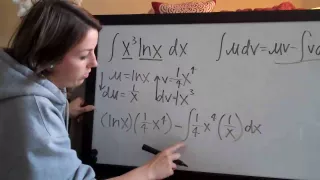 ∫ x³ lnx dx   ∫udv = uv - ∫v
↓ u = lnx   ↑ v = ¼x⁴
du = 1/x   dv = x³
(lnx)(¼x⁴) - ∫¼x⁴(1/x)dx